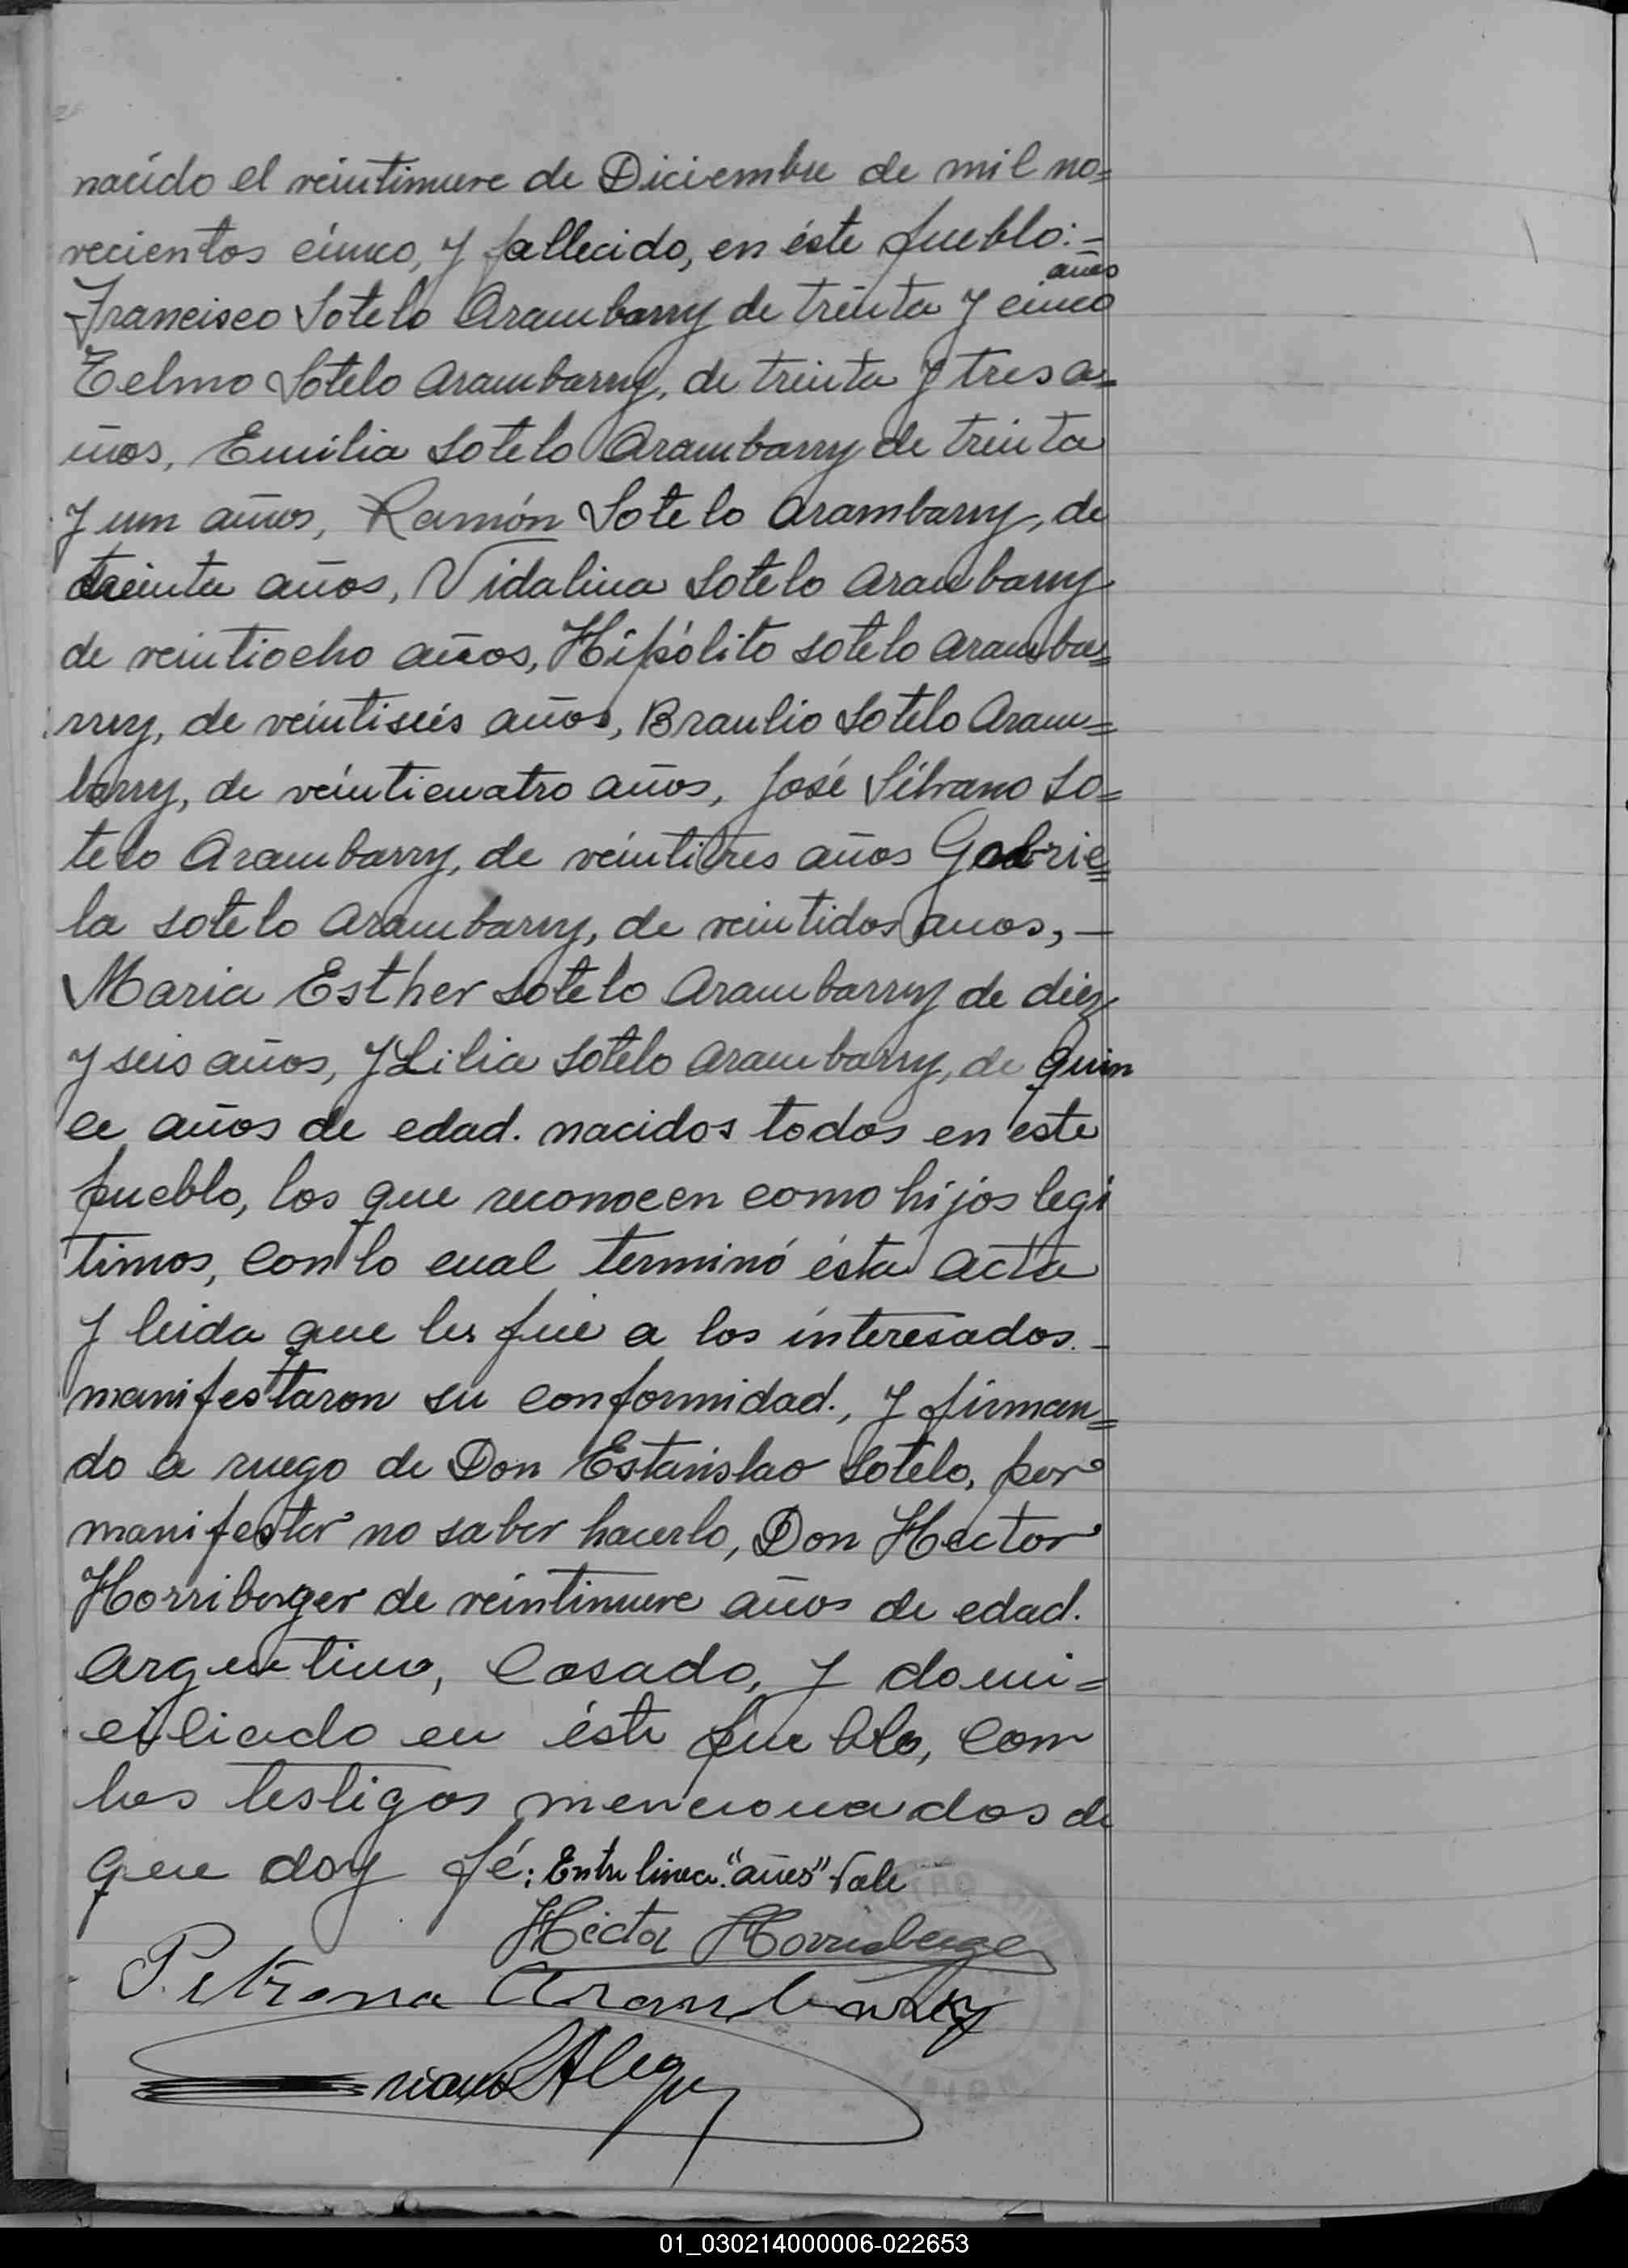 nacido el veintinueve de Diciembre de mil no=
vecientos cinco, y fallecido, en éste pueblo:-
años
Francisco Sotelo Arambarry de treinta y cinco
Telmo Sotelo Arambarry, de treinta y tres a=
ños, Emilia Sotelo Arambarry de treinta
y un años, Ramón Sotelo Arambarry, de
treinta años, Vidalina Sotelo Arambarry
de veintiocho años, Hipólito Sotelo Aramba=
rry, de veintiseis años, Braulio Sotelo Aram=
barry, de veinticuatro años, José Silvano So=
telo Arambarry, de veintitres años Gabrie=
la Sotelo Arambarry, de veintidos anos, -
Maria Esther Sotelo Arambarry de diez
y seis años, y Lilia Sotelo Arambarry, de quin
ce años de edad. nacidos todos en este
pueblo, los que reconocen como hijos legi
timos, con lo cual terminó ésta acta
y leida que les fué a los interesados. -
manifestaron su conformidad., y firman=
do a ruego de Don Estanislao Sotelo, por
manifestar no saber hacerlo, Don Hector
Horriberger de veintinueve años de edad.
argentino, Casado, y domi=
ciliado en éste pueblo, con
los testigos mencionados de
que doy fé; Entre linea: "años" Vale
Héctor Horriberger
Petrona Arambarry
01_030214000006-022653